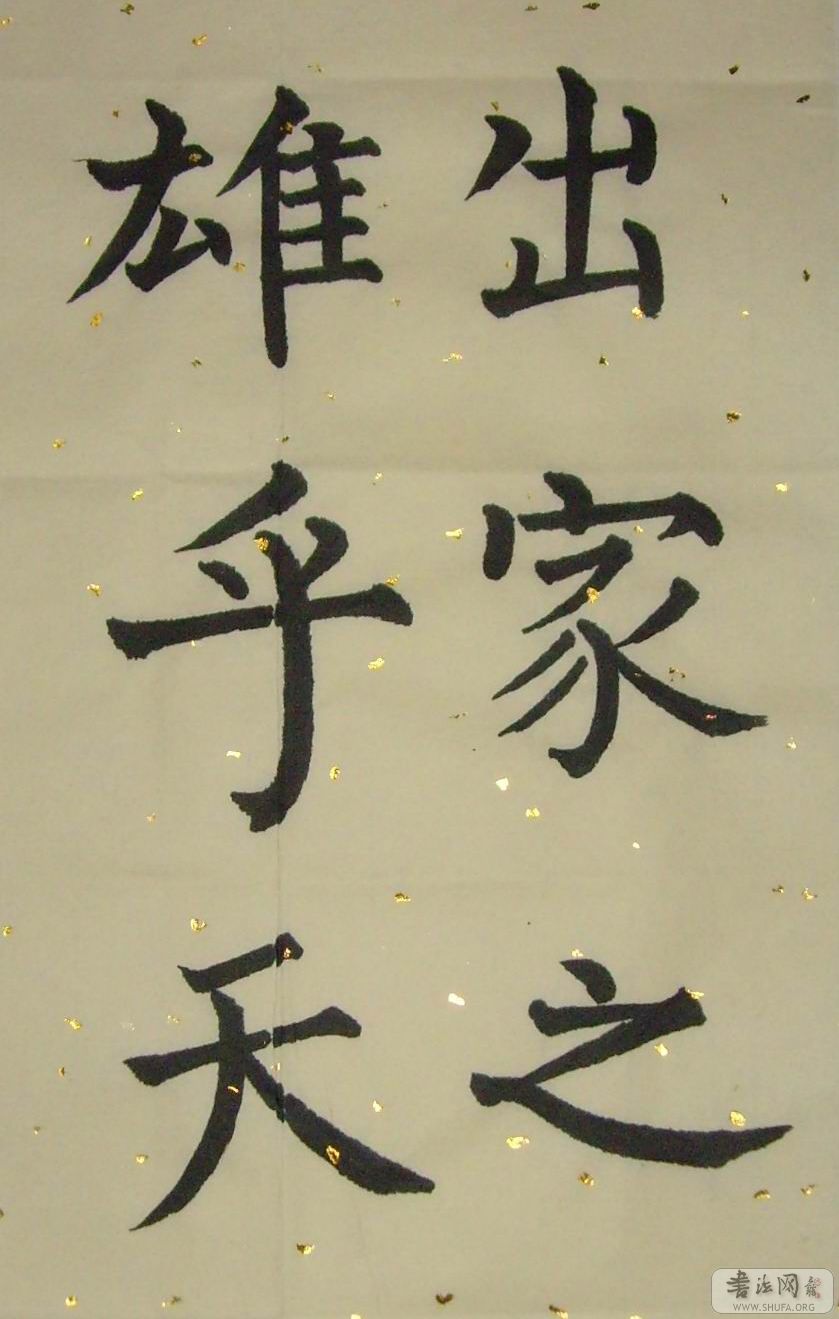 出家之
雄乎天
書法网
WWW.SHUFA.ORG